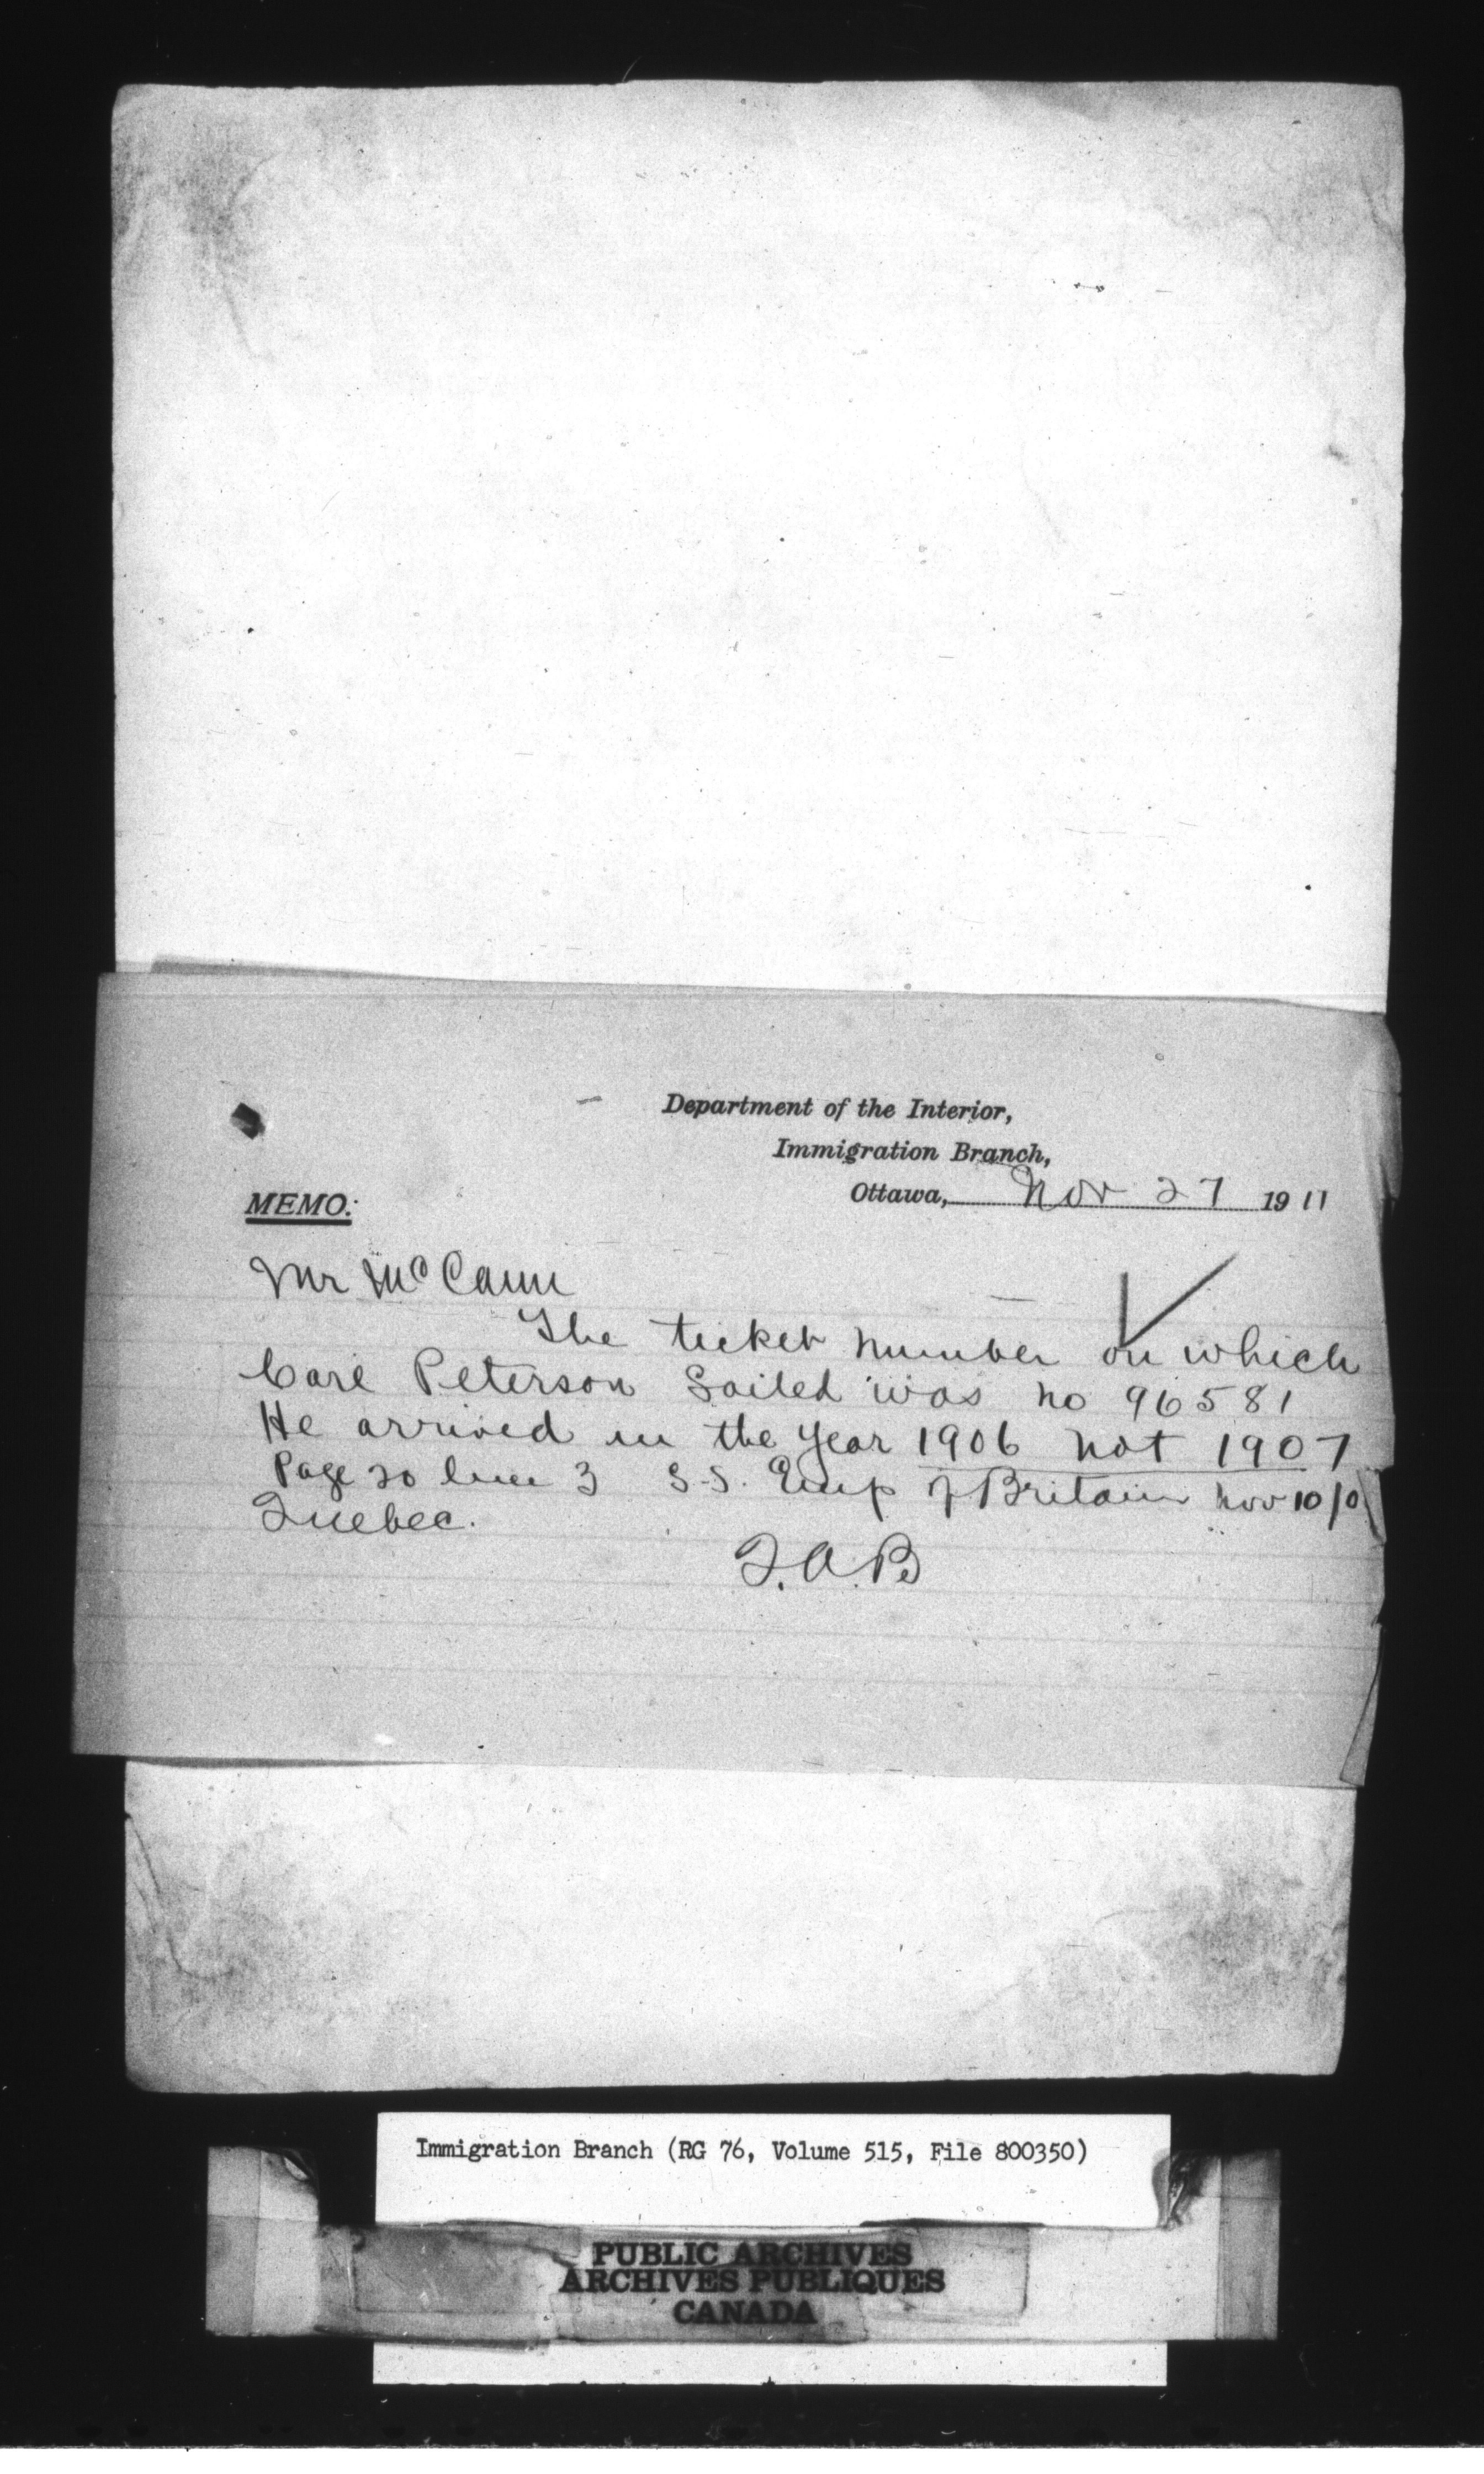 Department of the Interior,
Immigration Branch,
Ottawa, Nov 27 1911
MEMO:
Mr McCann
The ticket number on which
Carl Peterson Sailed was no 96581
He arrived in the year 1906 not 1907
Page 20 line 3 S-S. Emp of Britain Nov 10/0
Quebec.
J.A.B
Immigration Branch (RG 76, Volume 515, File 800350)
PUBLIC ARCHIVES
ARCHIVES PUBLIQUES
CANADA